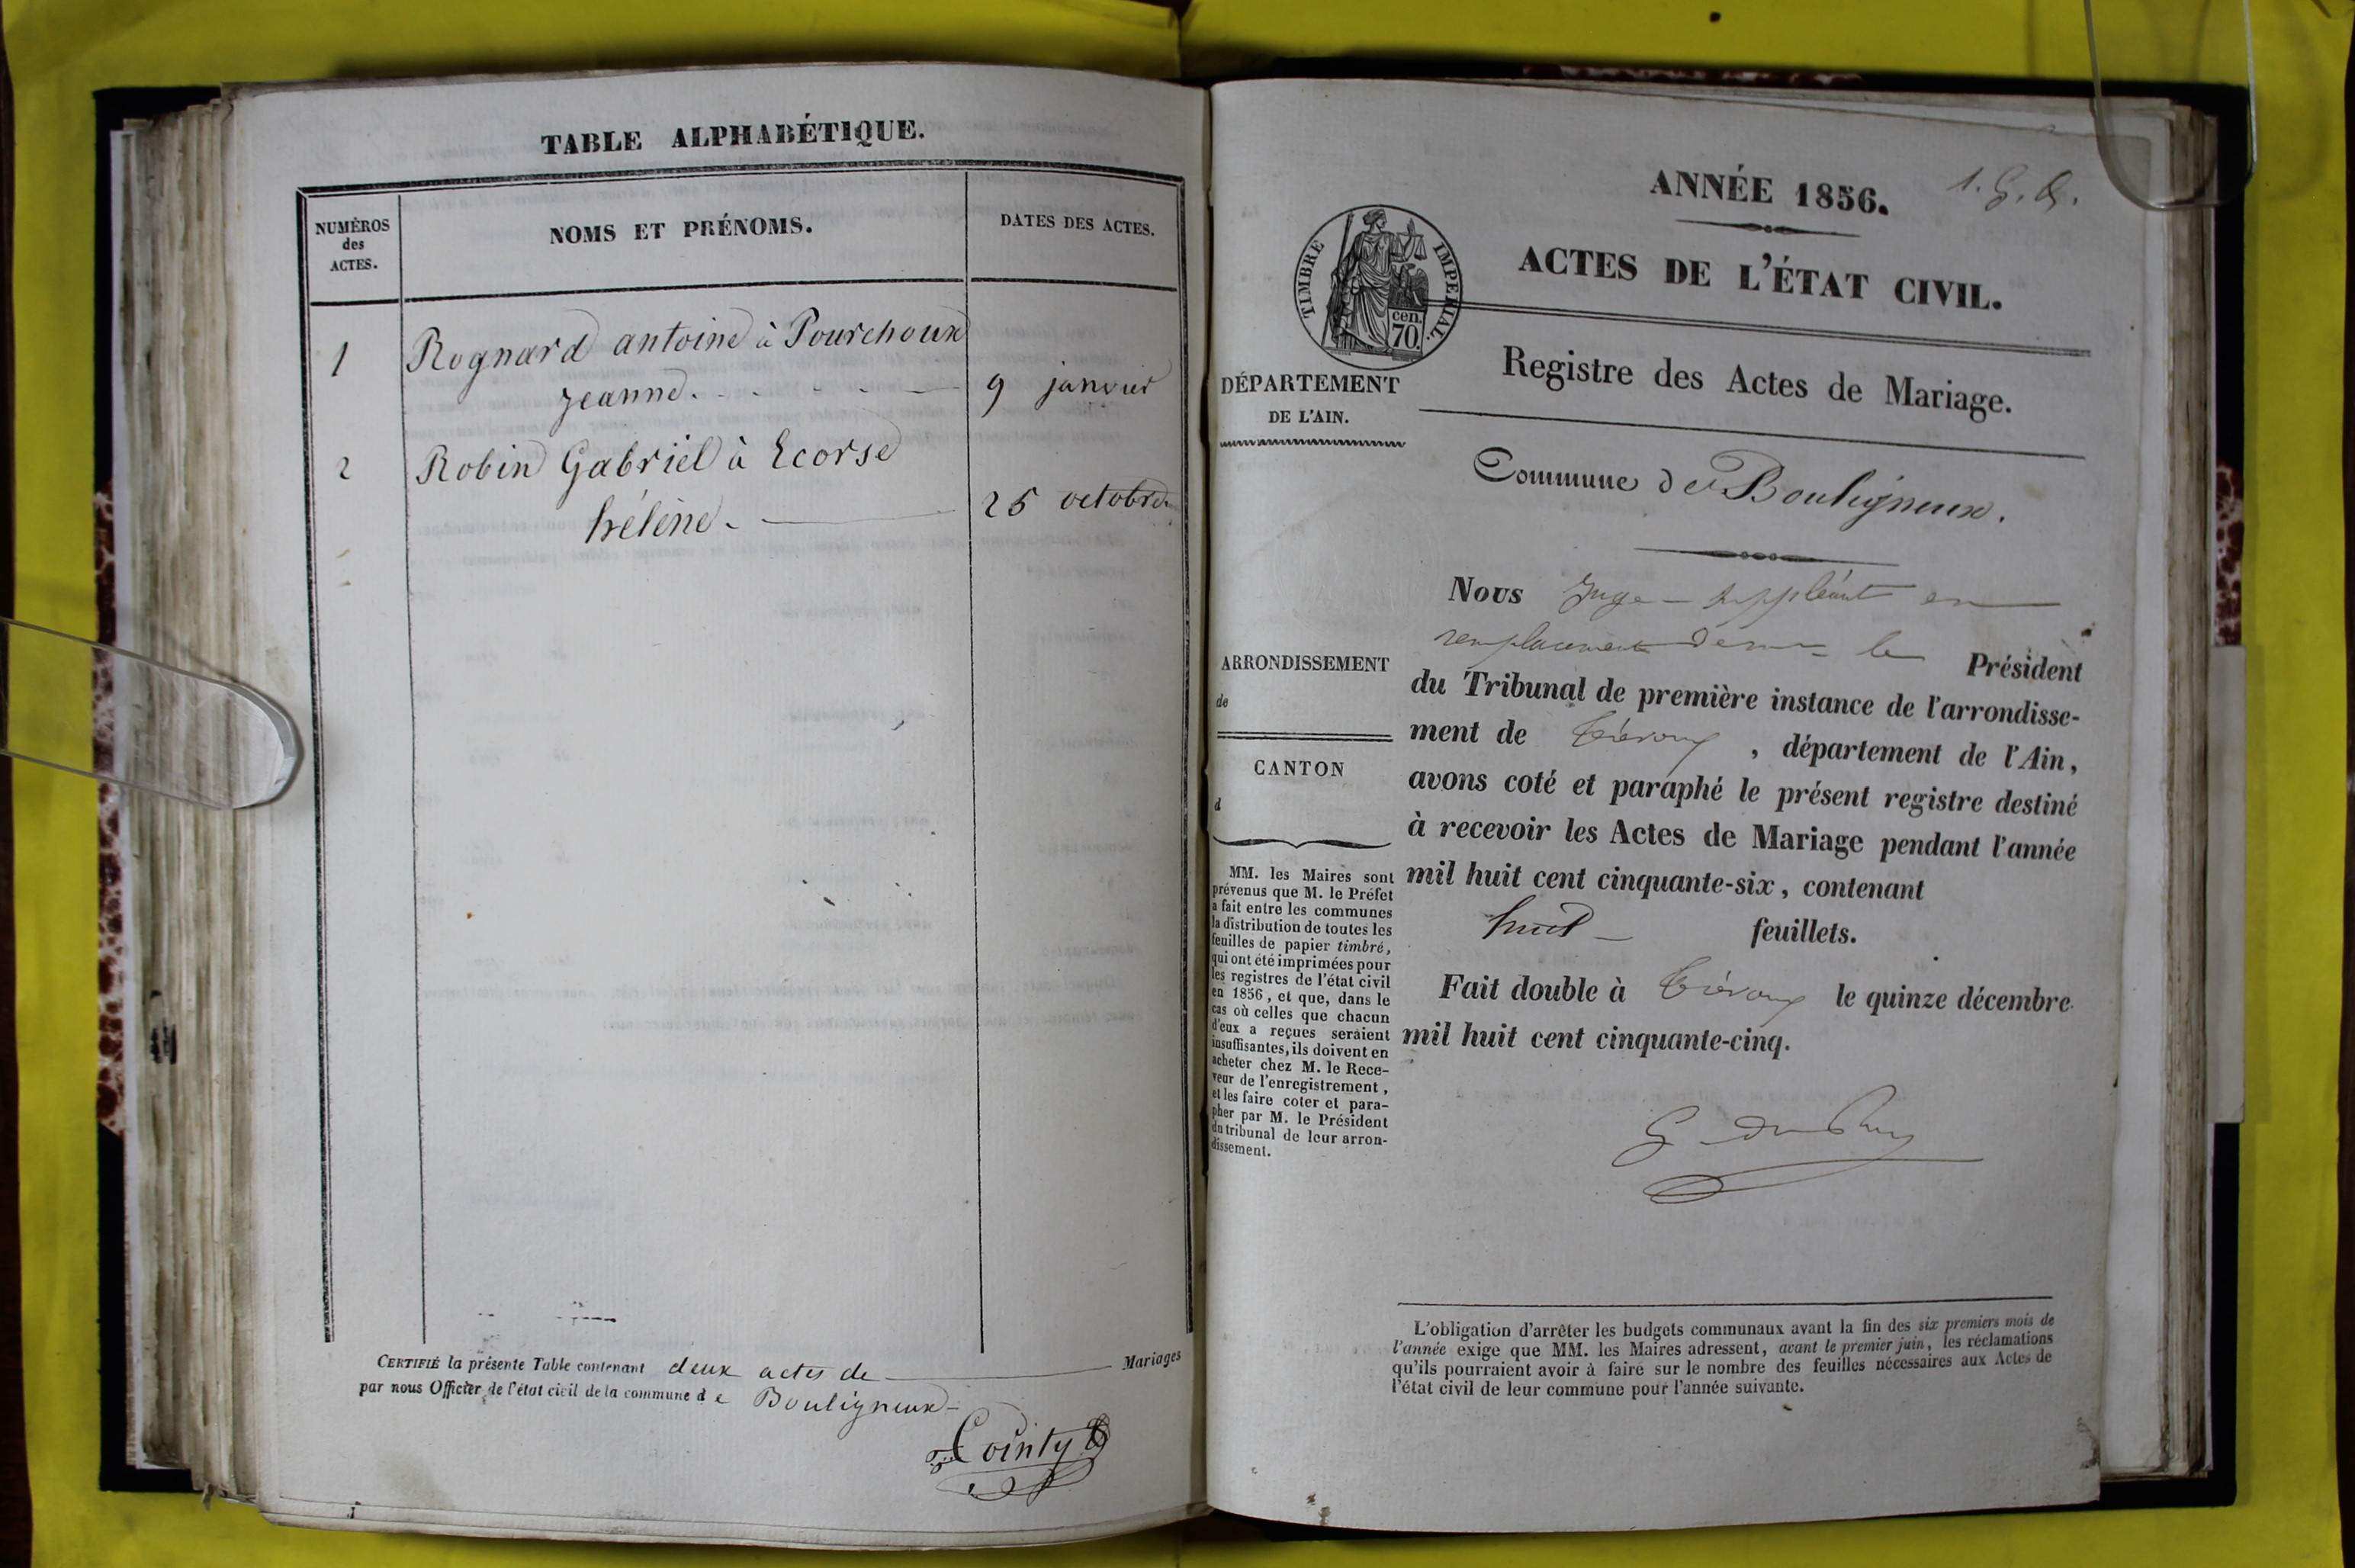 TABLE ALPHABÉTIQUE.
NUMÉROS
des
ACTES.
NOMS ET PRÉNOMS.
DATES DES ACTES.
1 Rognard antoine à Pourchoux
jeanne. 9 janvier
2 Robin Gabriel à Ecorse
hélène. 25 octobre
CERTIFIÉ la présente Table contenant deux actes de Mariages
par nous Officier de l'état civil de la commune de Bouligneux
Cointy
ANNÉE 1856.
ACTES DE L'ÉTAT CIVIL.
TIMBRE IMPÉRIAL.
cen.
70.
Registre des Actes de Mariage.
DÉPARTEMENT
DE L'AIN.
Commune de Bouligneux.
ARRONDISSEMENT
de
CANTON
d
MM. les Maires sont
prévenus que M. le Préfet
a fait entre les communes
la distribution de toutes les
feuilles de papier timbré,
qui ont été imprimées pour
les registres de l'état civil
en 1856, et que, dans le
cas où celles que chacun
d'eux a reçues seraient
insuffisantes, ils doivent en
acheter chez M. le Rece-
veur de l'enregistrement,
et les faire coter et para-
pher par M. le Président
du tribunal de leur arron-
dissement.
Nous Juge-suppléant en
remplacement de mr le Président
du Tribunal de première instance de l'arrondisse-
ment de Trévoux, département de l'Ain,
avons coté et paraphé le présent registre destiné
à recevoir les Actes de Mariage pendant l'année
mil huit cent cinquante-six, contenant
huit feuillets.
Fait double à Trévoux le quinze décembre
mil huit cent cinquante-cinq.
L'obligation d'arrêter les budgets communaux avant la fin des six premiers mois de
l'année exige que MM. les Maires adressent, avant le premier juin, les réclamations
qu'ils pourraient avoir à faire sur le nombre des feuilles nécessaires aux Actes de
l'état civil de leur commune pour l'année suivante.